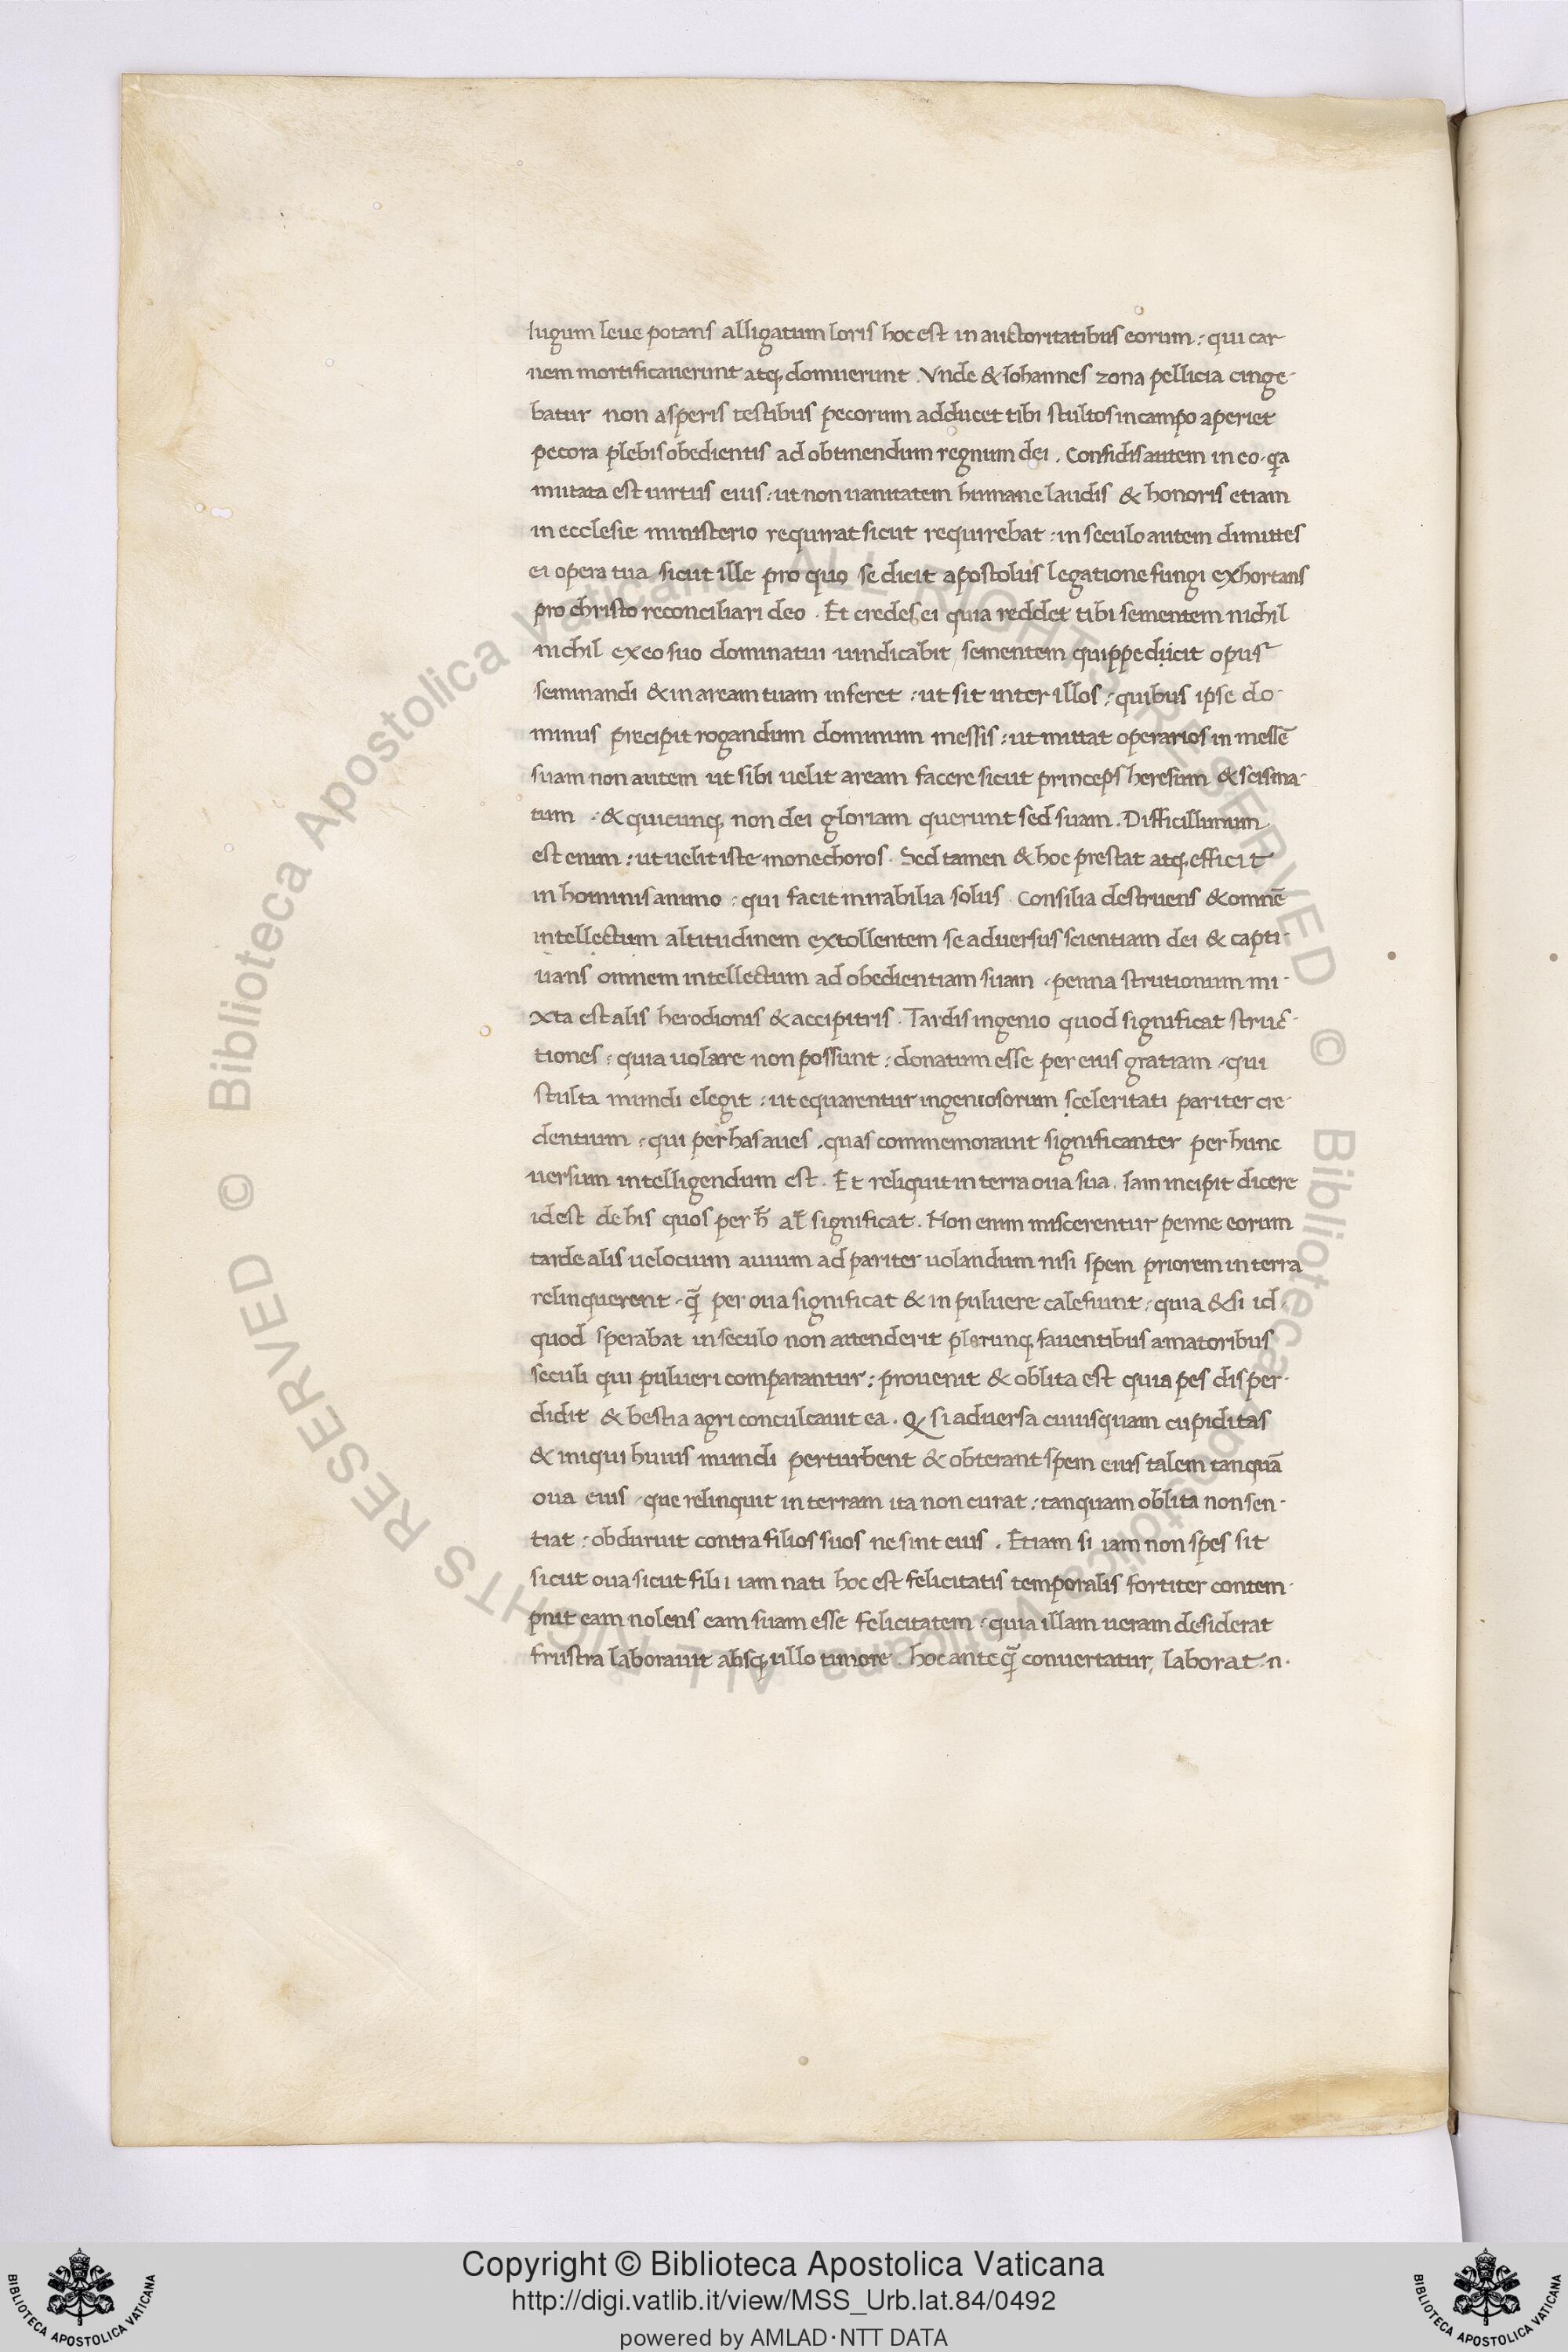 Iugum leue potans alligatum loris hoc est in auctoritatibus eorum : qui car
nem mortificauerunt atq; domuerunt . Vnde & Iohannes zona pellicia cinge-
batur non asperis testibus pecorum adducet tibi stultos in campo aperiet
pecora plebis obedientis ad obtinendum regnum dei . Confidis autem in eo . qa
mutata est uirtus eius : ut non uanitatem humane laudis & honoris etiam
in ecclesie ministerio requirat sicut requirebat : in seculo autem dimittes
ei opera tua sicut ille pro quo se dicit apostolus legatione fungi exhortans
pro christo reconciliari deo . Et credes ei quia reddet tibi sementem nichil
nichil ex eo suo dominatui uindicabit , sementem quippe dicit opus
seminandi & in aream tuam inferet : ut sit inter illos : quibus ipse do-
minus precipit rogandum dominum messis : ut mittat operarios in messē
suam non autem ut sibi uelit aream facere sicut princeps heresum & scisma-
tum . & quicunq; non dei gloriam querunt sed suam . Difficillimum
est enim : ut uelit iste monechoros . Sed tamen & hoc prestat atq; efficit
in hominis animo : qui facit mirabilia solus . Consilia destruens & omnē
intellectum altitudinem extollentem se aduersus scientiam dei & capti-
uans omnem intellectum ad obedientiam suam . penna strutionum mi-
xta est alis herodionis & accipitris . Tardis ingenio quod significat struc̄-
tiones : quia uolare non possunt : donatum esse per eius gratiam . qui
stulta mundi elegit : ut equarentur ingeniosorum sceleritati pariter cre-
dentium : qui per has aues . quas commemorauit significanter per hunc
uersum intelligendum est . Et reliquit in terra oua sua . Iam incipit dicere
idest de his quos per h̄ al̄ significat . Non enim miscerentur penne eorum
tarde alis uelocium auium ad pariter uolandum nisi spem priorem in terra
relinquerent . q̄ per oua significat & in puluere calefiunt : quia & si id
quod sperabat in seculo non attenderit plerunq; fauentibus amatoribus
seculi qui pulueri comparantur : prouenit & oblita est quia pes disper-
didit & bestia agri conculcauit ea . Q si aduersa cuiusquam cupiditas
& iniqui huius mundi perturbent & obterant spem eius talem tanquā
oua eius . que relinquit in terram ita non curat : tanquam oblita non sen-
tiat : obduruit contra filios suos ne sint eius . Etiam si iam non spes sit
sicut oua sicut filii iam nati hoc est felicitatis temporalis fortiter contem-
pnit eam nolens eam suam esse felicitatem : quia illam ueram desiderat
frustra laborauit absq; ullo timore . hoc anteq̄ conuertatur , laborat . n .
Copyright © Biblioteca Apostolica Vaticana
http://digi.vatlib.it/view/MSS_Urb.lat.84/0492
powered by AMLAD·NTT DATA
BIBLIOTECA APOSTOLICA VATICANA
BIBLIOTECA APOSTOLICA VATICANA
© Biblioteca Apostolica Vaticana ALL RIGHTS RESERVED
© Biblioteca Apostolica Vaticana ALL RIGHTS RESERVED